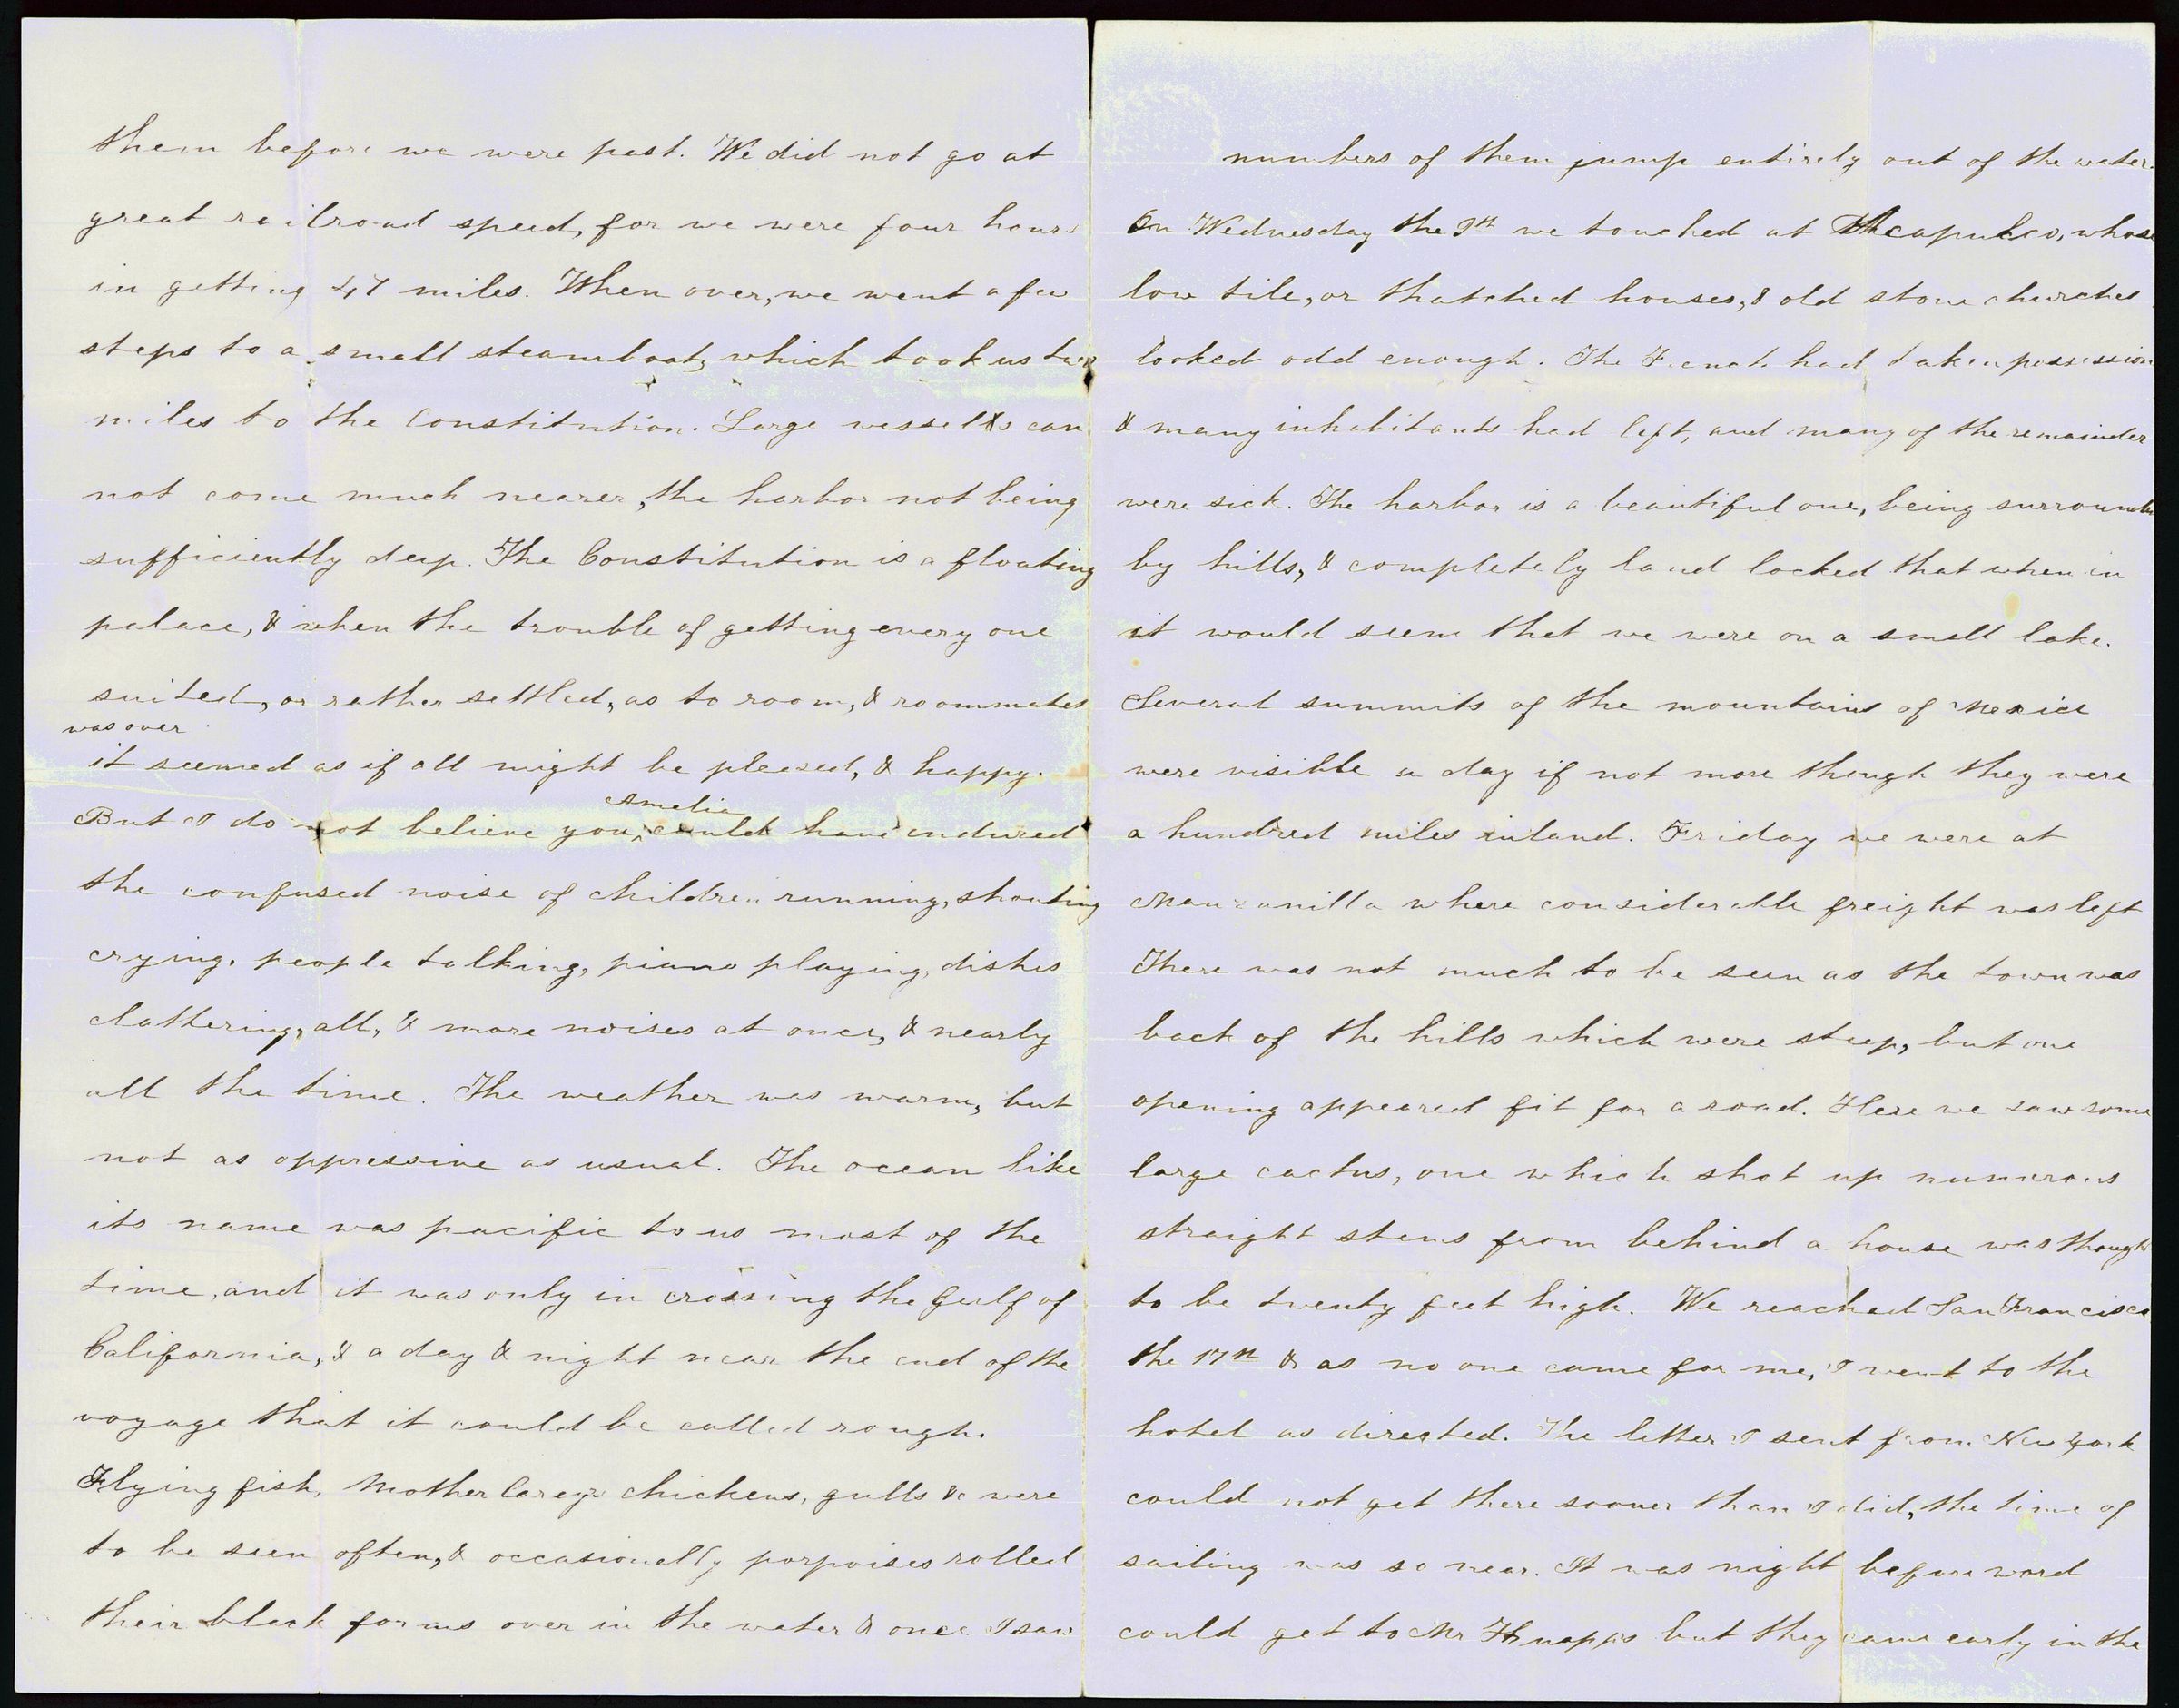 them before we were past. We did not go at
great railroad speed, for we were four hours
in getting 47 miles. When over, we went a few
steps to a small steamboat, which took us two
miles to the Constitution. Large vessels can
not come much nearer, the harbor not being
sufficiently deep. The Constitution is a floating
palace, & when the trouble of getting every one
suited, or rather settled, as to room, & roommates
was over
it seemed as if all might be pleased, & happy.
Amelia
But I do not believe you, could have endured
the confused noise of children running, shouting
crying, people talking, piano playing, dishes
clattering, all, & more noises at once, & nearly
all the time. The weather was warm, but
not as oppressive as usual. The ocean like
its name was pacific to us most of the
time, and it was only in crossing the Gulf of
California, & a day & night near the end of the
voyage that it could be called rough.
Flying fish, Mother Carey's chickens, gulls &c were
to be seen often, & occasionally porpoises rolled
their black forms over in the water & once I saw
numbers of them jump entirely out of the water.
On Wednesday the 9th we touched at Acapulco, whose
low tile, or thatched houses, & old stone churches
looked odd enough. The French had taken possession
& many inhabitants had left, and many of the remainder
were sick. The harbor is a beautiful one, being surrounded
by hills, & completely land locked that when in
it would seem that we were on a small lake.
Several summits of the mountains of Mexico
were visible a day if not more though they were
a hundred miles inland. Friday we were at
Manzanilla where considerable freight was left
There was not much to be seen as the town was
back of the hills which were steep, but one
opening appeared fit for a road. Here we saw some
large cactus, one which shot up numerous
straight stems from behind a house was thought
to be twenty feet high. We reached San Francisco
the 17th & as no one came for me, I went to the
hotel as directed. The letter I sent from New York
could not get there sooner than I did, the time of
sailing was so near. It was night before word
could get to Mr Knapps but they came early in the